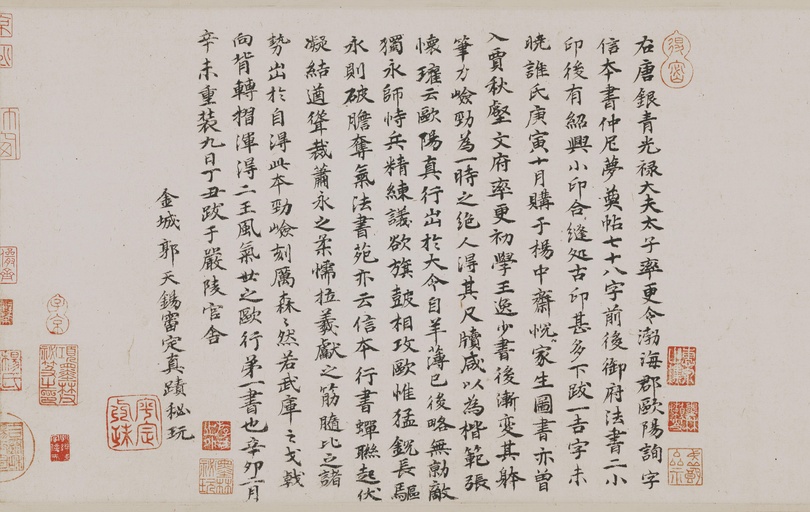 右唐銀青光祿大夫太子率更令渤海郡歐陽詢字
信本書仲尼夢奠帖七十八字前後御府法書二小
印後有紹興小印合縫処古印甚多下跋一吉字未
曉誰氏庚寅十月購于楊中齋悅生圖書亦曾
入賈秋壑家文府率更初學王逸少書後漸變其躰
筆力嶮勁為一時之绝人得其尺牘咸以為楷範張
懷瓘云歐陽真行出於大令自羊薄已後略無勍敵
獨永師恃兵精練議欲旗鼓相攻歐惟猛銳長驅
永則破膽奪氣法書苑亦云信本行書蟬聯起伏
凝結遒聳裁蕭永之柔懦拉羲獻之筋髓比之諸
勢出於自得此本勁嶮刻厲森〻然若武庫之戈戟
向背轉摺渾得二王風氣世之歐行第一書也辛卯二月
辛未重装九日丁丑跋于嚴陵官舍
金城郭天錫審定真蹟秘玩